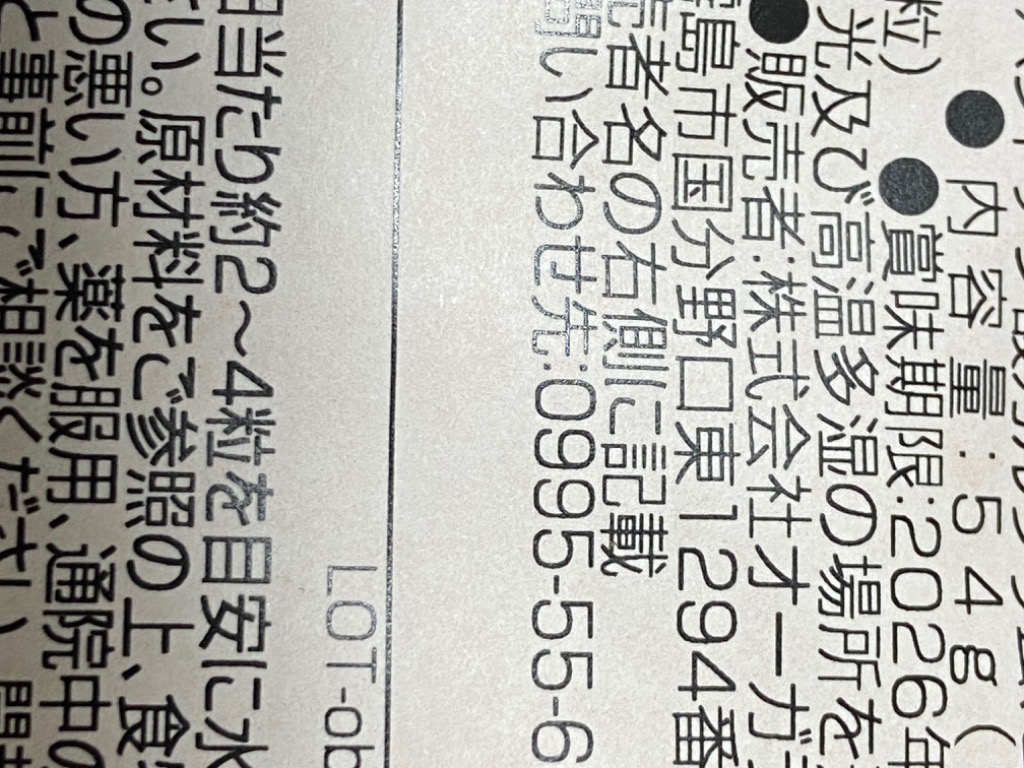 ●内容量:54g(
粒) ●賞味期限:2026年
光及び高温多湿の場所を
●販売者:株式会社オーガ
島市国分野口東1294番
売者名の右側に記載
問い合わせ先:0995-55-6
LOT-ob
日当たり約2～4粒を目安に水
い。原材料をご参照の上、食
の悪い方、薬を服用、通院中の
と事前にご相談ください。開